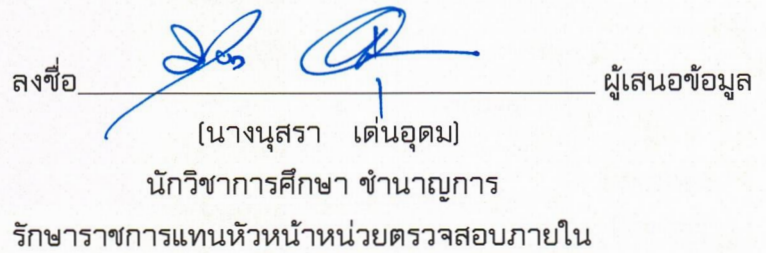 ลงชื่อ ผู้เสนอข้อมูล
(นางนุสรา เด่นอุดม)
นักวิชาการศึกษา ชำนาญการ
รักษาราชการแทนหัวหน้าหน่วยตรวจสอบภายใน